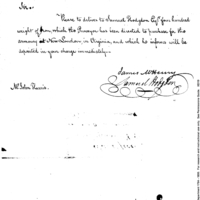 Sir.
Please to deliver to Samuel Hodgdon Esqr. four hundred
weight of Iron, which the Purveyor has been directed to purchase for the
armoury at New London in Virginia, and which he informs will be
deposited in your charge immediately.
James McHenry
Samuel Hodgdon
Mr. John Harris.